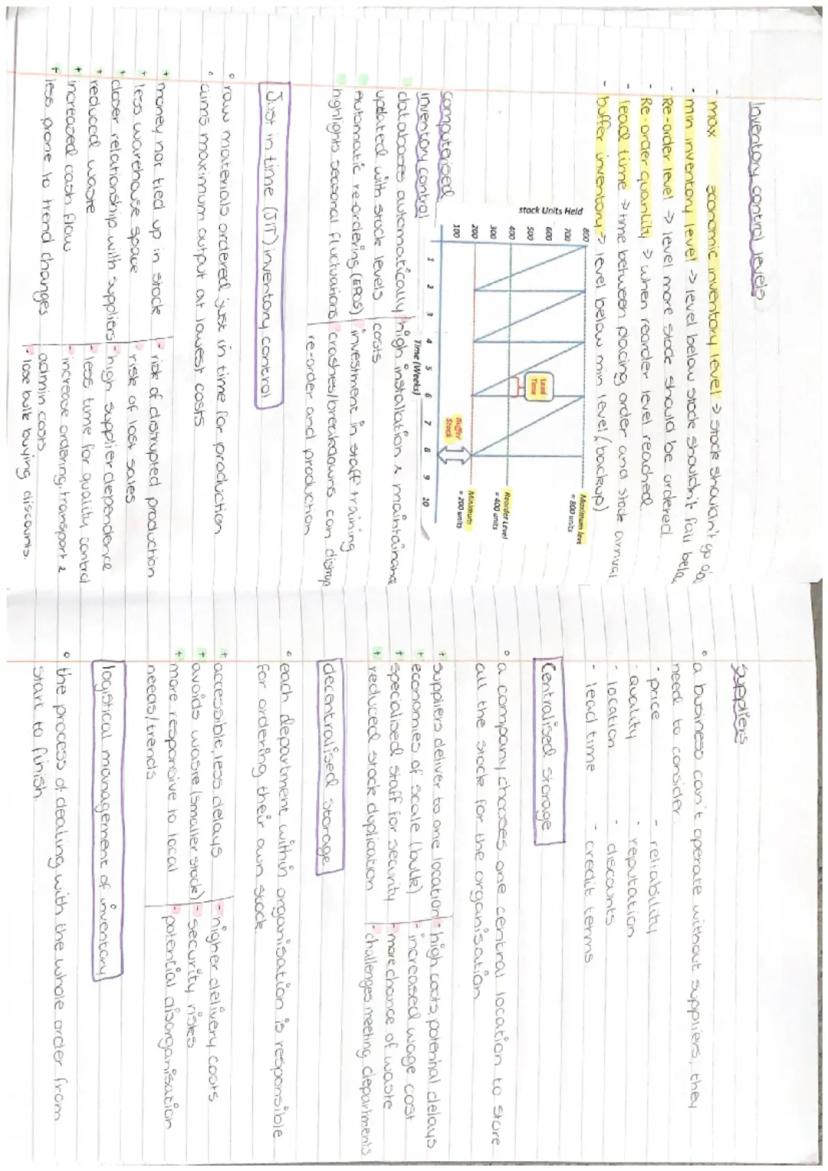 Inventory control levels
- max economic inventory level → stock shouldn't go
- min inventory level → level below stock shouldn't fall belo
- Re-order level → level more stock should be ordered
- Re-order quantity → when reorder level reached
- lead time → time between pacing order and stock arrival
- buffer inventory → level below min level (backup)
stock Units Held
800
700
600
500
400
300
200
100
1 2 3 4 5 6 7 8 9 10
Time (Weeks)
Lead Time
Buffer Stock
Maximum leve
= 800 units
Reorder Level
= 400 units
Minimum
= 200 units
computerised
inventory control
databases automatically
updated with stock levels
automatic re-ordering (EPOS)
highlights seasonal fluctuations
high installation & maintainance
costs
- investment in staff training
- crashes/breakdowns can disrup
re-order and production
Just in time (JIT) inventory control
° raw materials ordered just in time for production
° aims maximum output at lowest costs
+ money not tied up in stock
+ less warehouse space
+ closer relationship with suppliers
+ reduced waste
+ increased cash flow
+ less prone to trend changes
- risk of disrupted production
- risk of lost sales
- high supplier dependence
- less time for quality control
- increase ordering, transport &
admin costs
- lose bulk buying discounts.
suppliers
° a business can't operate without suppliers, they
need to consider:
- price
- quality
- location
- lead time
- reliability
- reputation
- discounts
- credit terms
Centralised storage
° a company chooses one central location to store
all the stock for the organisation
+ suppliers deliver to one location
+ economies of scale (bulk)
+ specialised staff for security
+ reduced stock duplication
- high costs, potential delays
- increased wage cost
- more chance of waste
- challenges meeting departments
decentralised storage
° each department within organisation is responsible
for ordering their own stock
+ accessible, less delays
+ avoids waste (smaller stock)
+ more responsive to local
needs/trends
- higher delivery costs
- security risks
- potential disorganisation
logistical management of inventory
° the process of dealing with the whole order from
start to finish